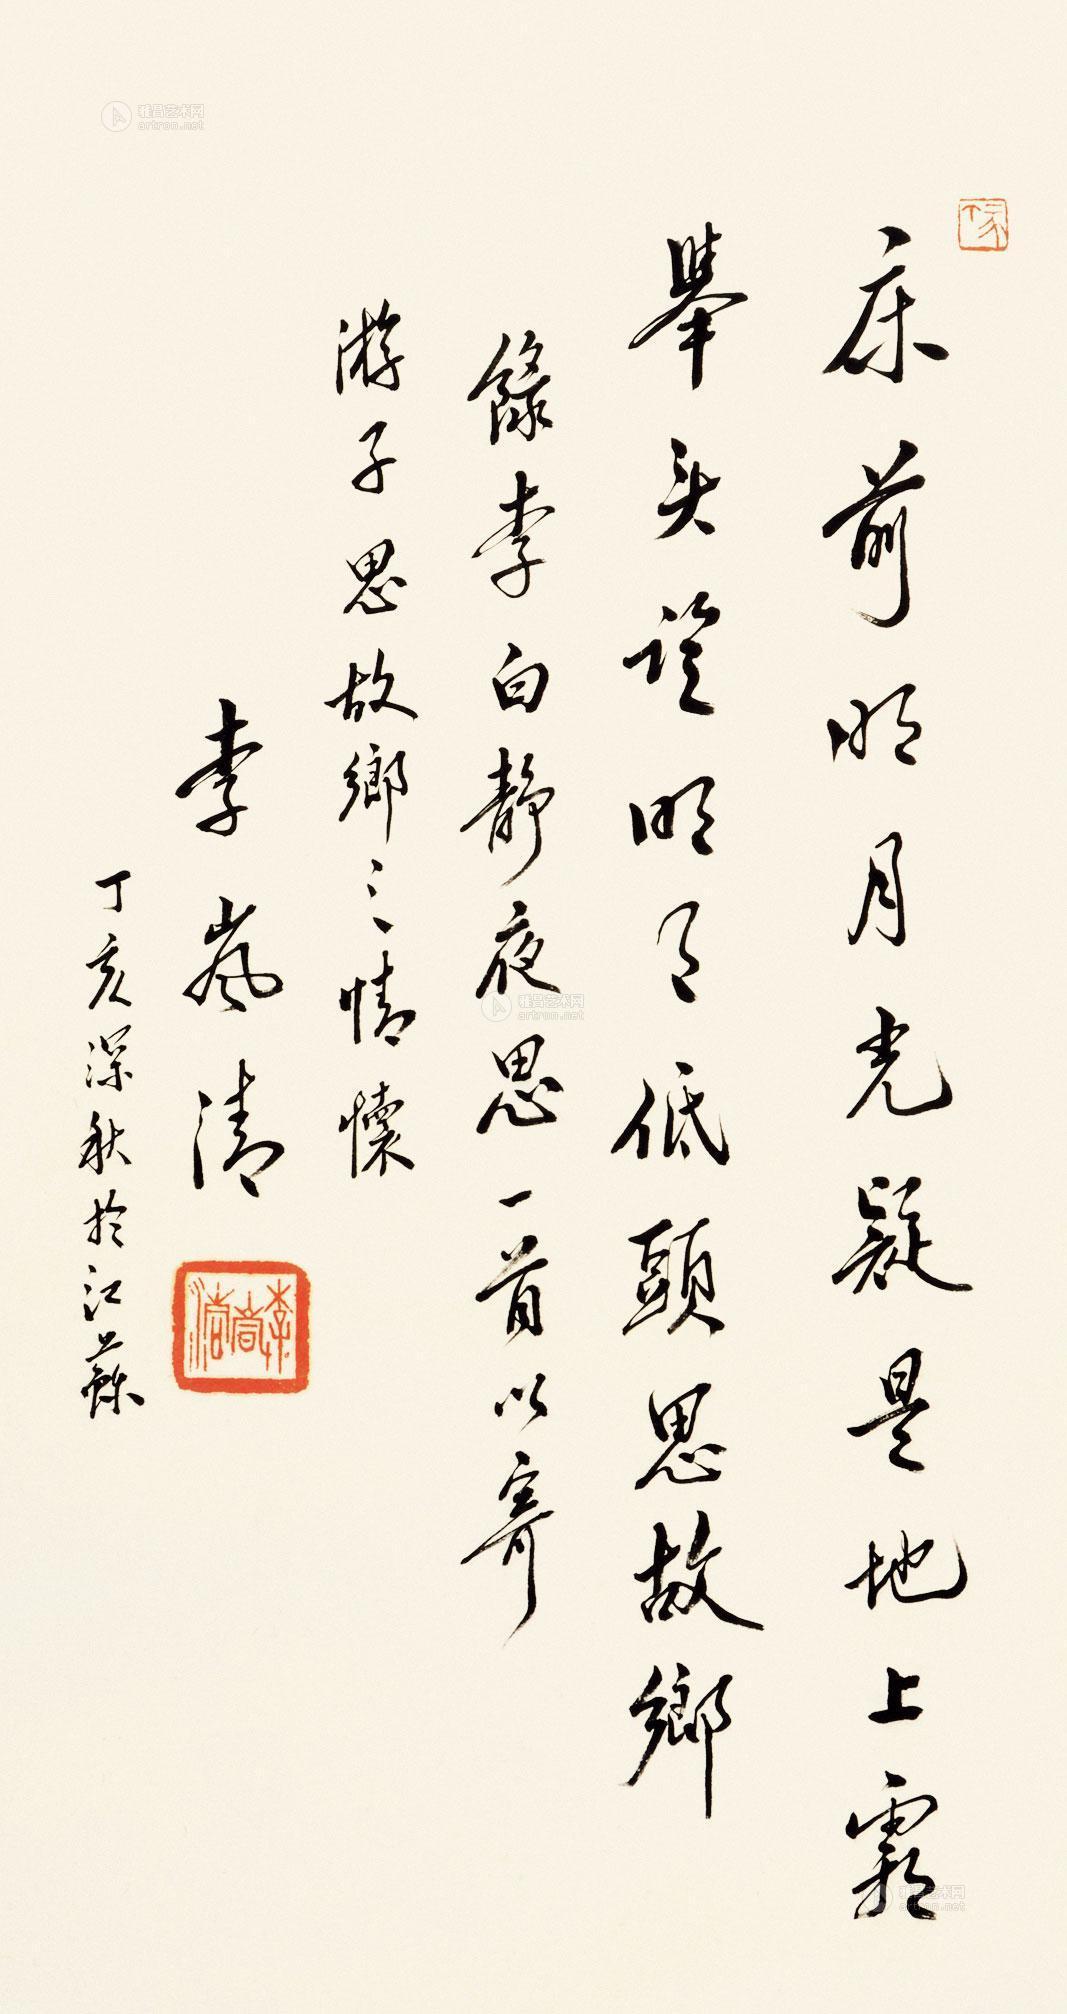 床前明月光疑是地上霜
舉头望明月低頭思故鄉
錄李白静夜思一首以寄
游子思故鄉之情懷
李嵐清
丁亥深秋於江蘇
李嵐清
雅昌艺术网
artron.net
雅昌艺术网
artron.net
雅昌艺术网
artron.net